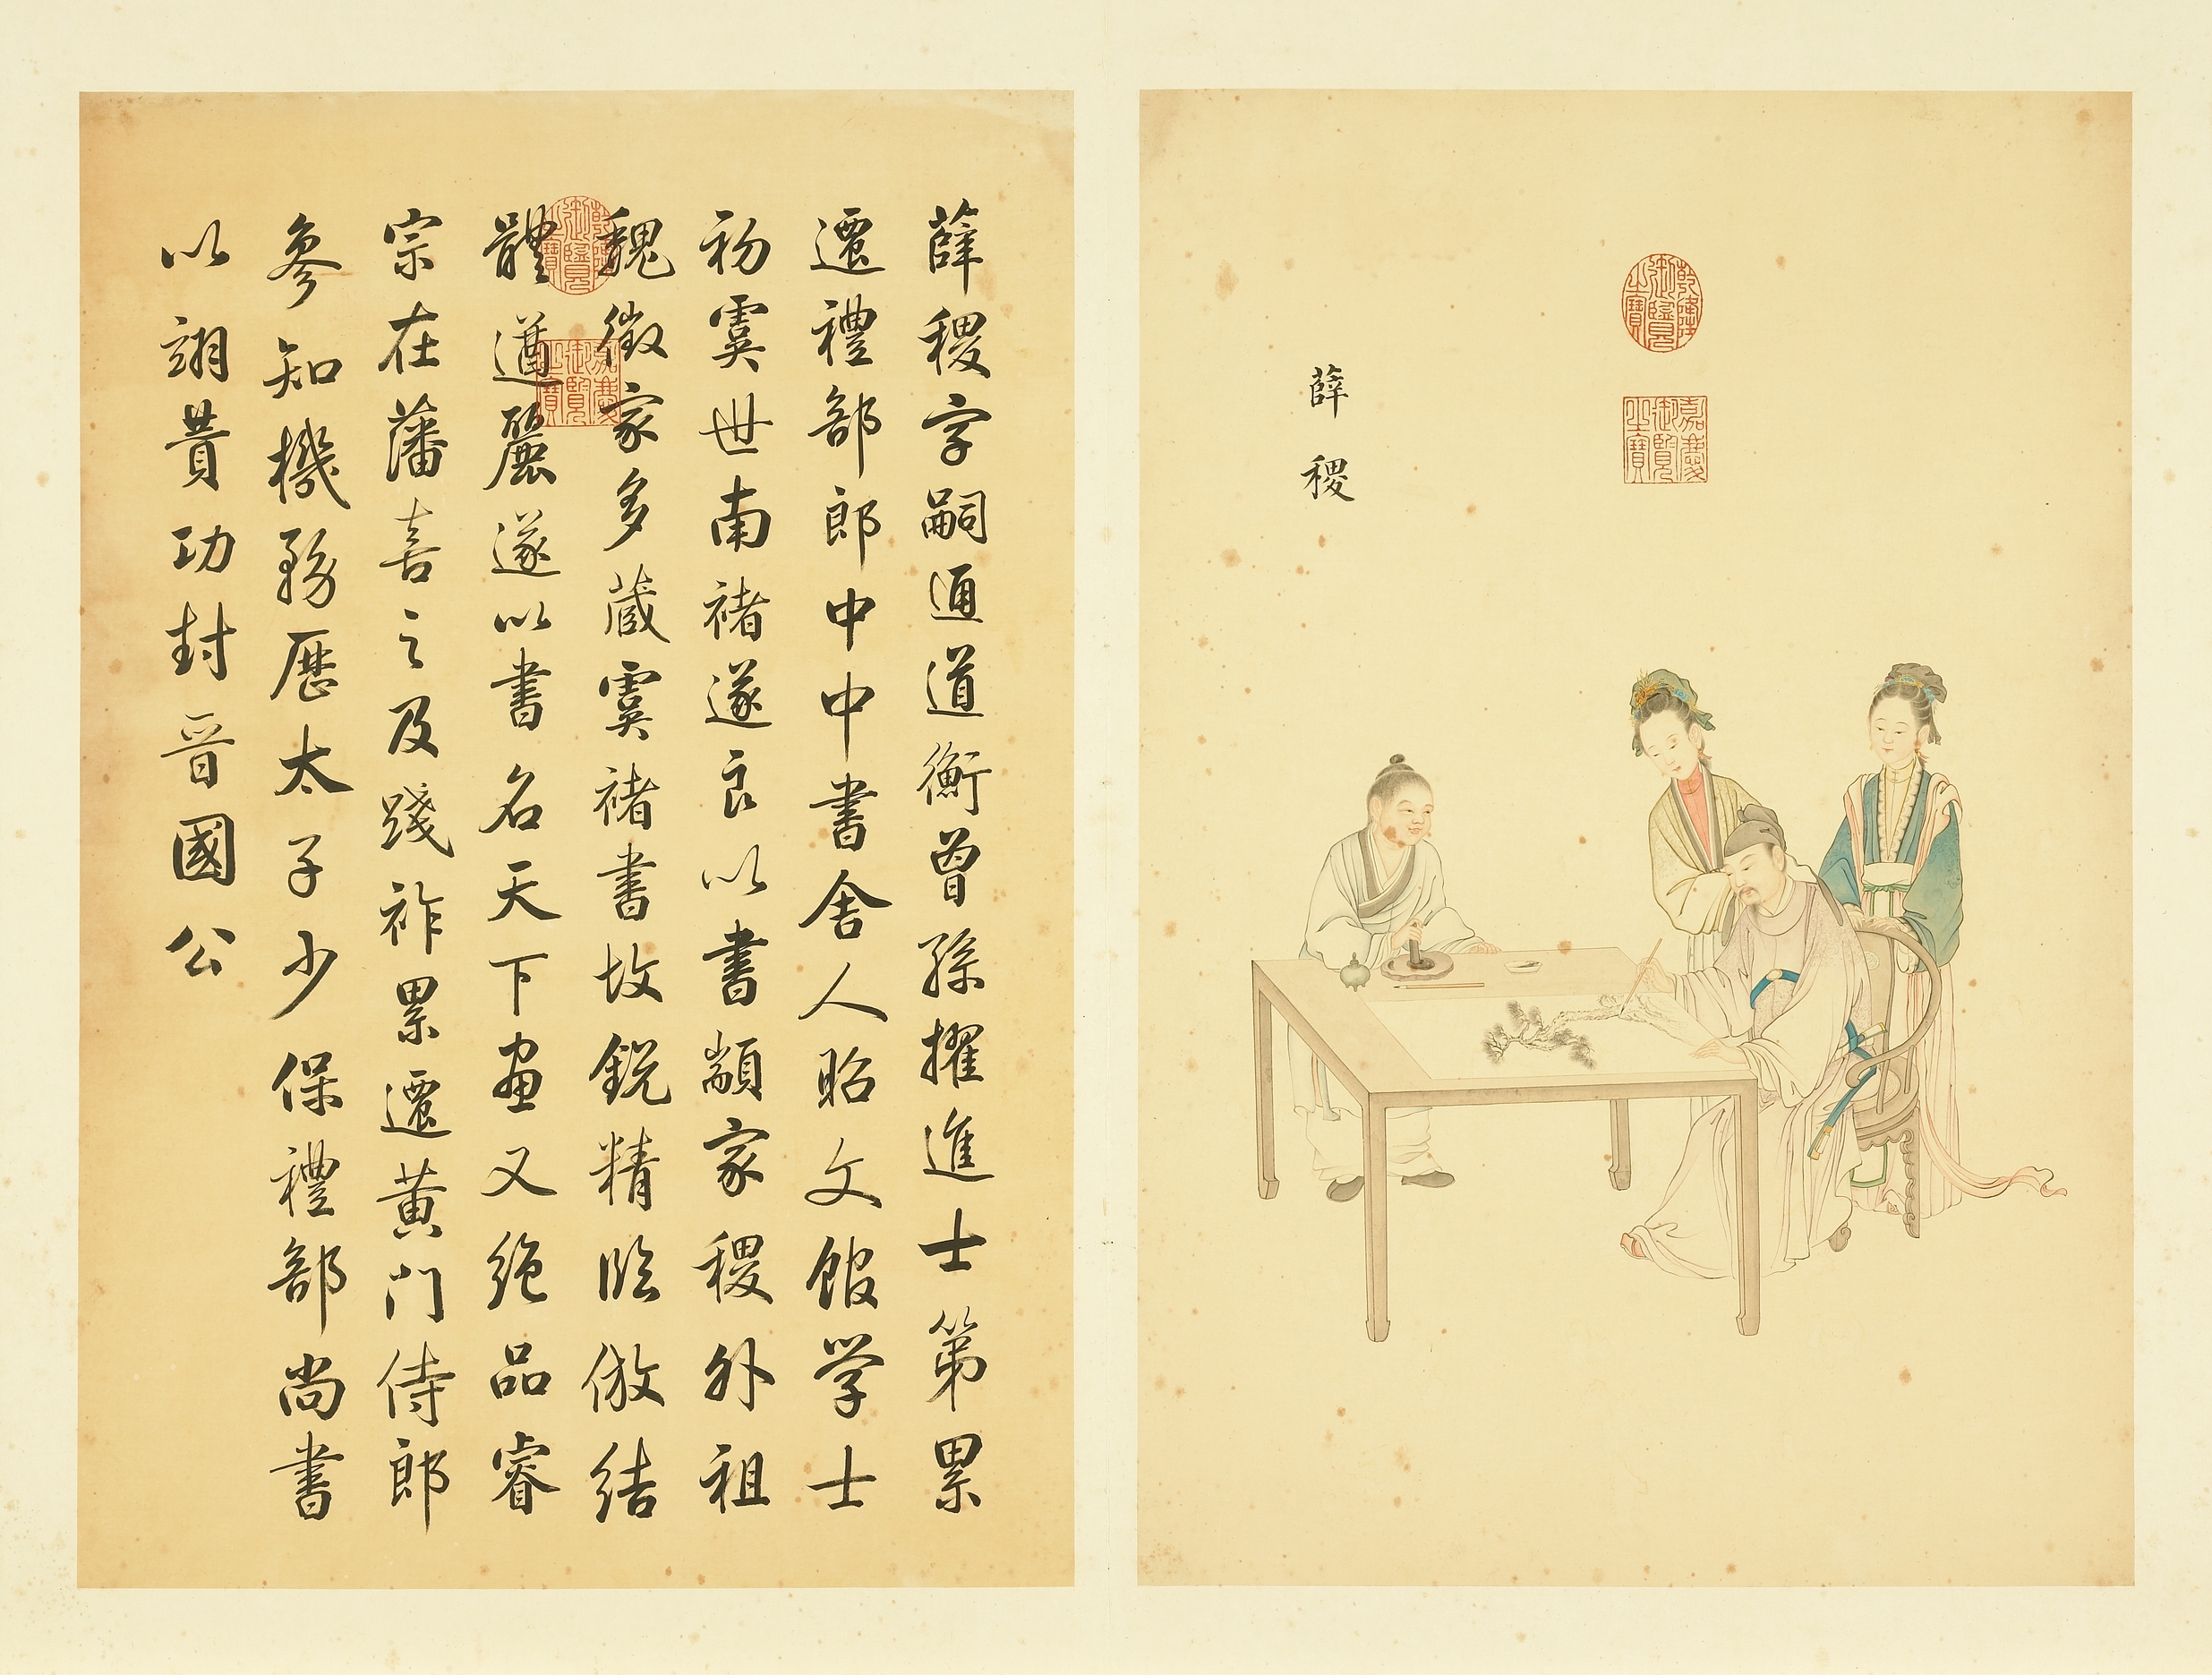 薛稷
乾隆御覽之寶
嘉慶御覽之寶
薛稷字嗣通道衡曾孫擢進士第累
遷禮部郎中中書舍人昭文館学士
初虞世南褚遂良以書顓家稷外祖
魏徵家多蔵虞褚書故銳精臨倣結
體遒麗遂以書名天下畫又絶品睿
宗在藩喜之及踐祚累遷黄門侍郎
參知機務歷太子少保禮部尚書
以翊贊功封晉國公
乾隆御覽之寶
嘉慶御覽之寶